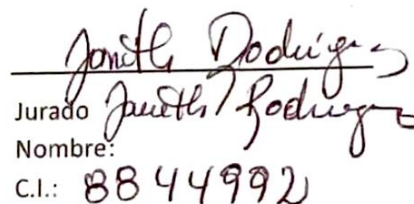 Janeth Rodríguez
Jurado Janeth Rodríguez
Nombre:
C.I.: 8844992